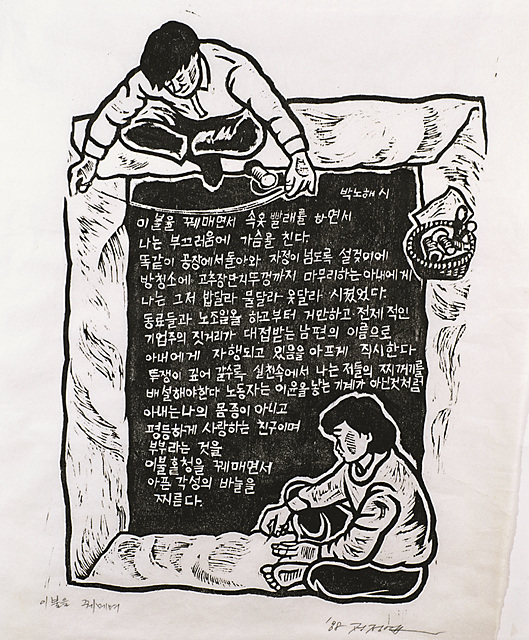 박노해 시
이불을 꿰매면서 속옷 빨래를 하면서
나는 부끄러움에 가슴을 친다.
똑같이 공장에서 돌아와 자정이 넘도록 설겆이에
방청소에 고추장단지 뚜껑까지 마무리하는 아내에게
나는 그저 밥달라 물달라 옷달라 시켰었다.
동료들과 노조일을 하고부터 거만하고 전제적인
기업주의 짓거리가 대접받는 남편의 이름으로
아내에게 자행되고 있음을 아프게 직시한다
투쟁이 깊어 갈수록 실천속에서 나는 저들의 찌꺼기를
배설해야한다 노동자는 이윤을 낳는 기계가 아닌것처럼
아내는 나의 몸종이 아니고
평등하게 사랑하는 친구이며
부부라는 것을
이불홑청을 꿰매면서
아픈 각성의 바늘을
찌른다.
이불을 꿰매며
'88